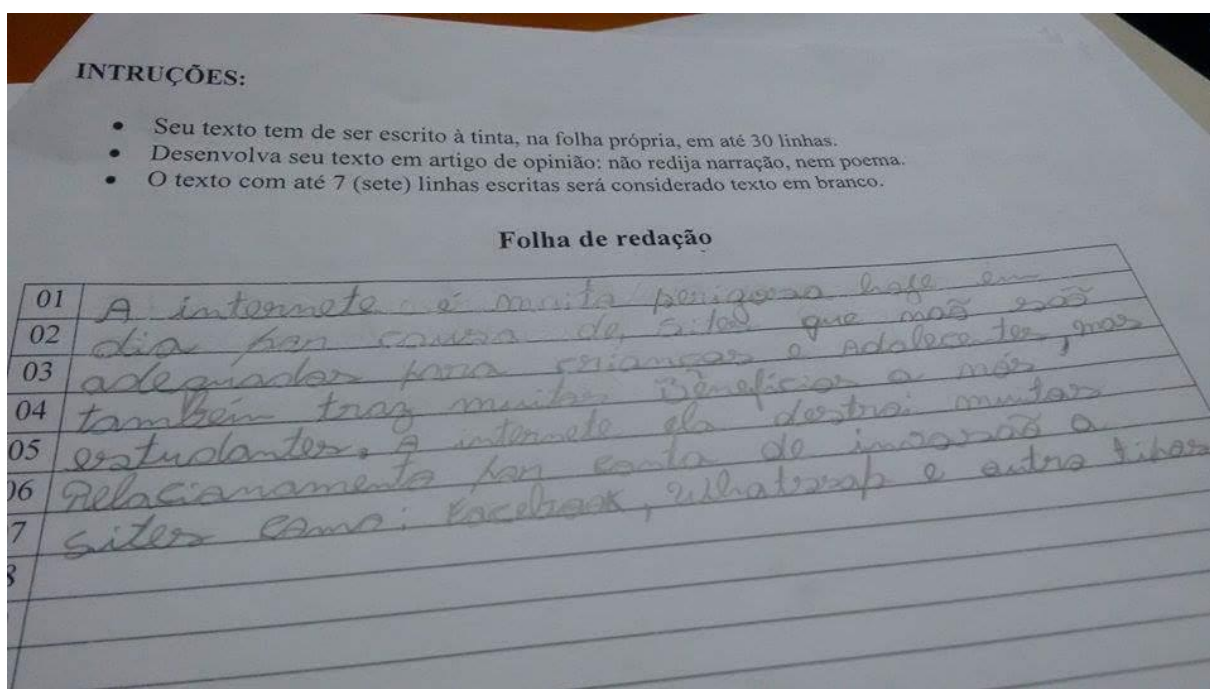 INTRUÇÕES:
• Seu texto tem de ser escrito à tinta, na folha própria, em até 30 linhas.
• Desenvolva seu texto em artigo de opinião: não redija narração, nem poema.
• O texto com até 7 (sete) linhas escritas será considerado texto em branco.
Folha de redação
01 A internete é muito perigosa hoje em
02 dia por causa de, sites que não são
03 adequados para crianças e Adolecentes, mas
04 também traz muitos Beneficios a nós,
05 estudantes. A internete ela destroi muitas
06 Relacionamento por conta de invasão a
7 sites como: Facebook, Whatsap e outro tipos
8